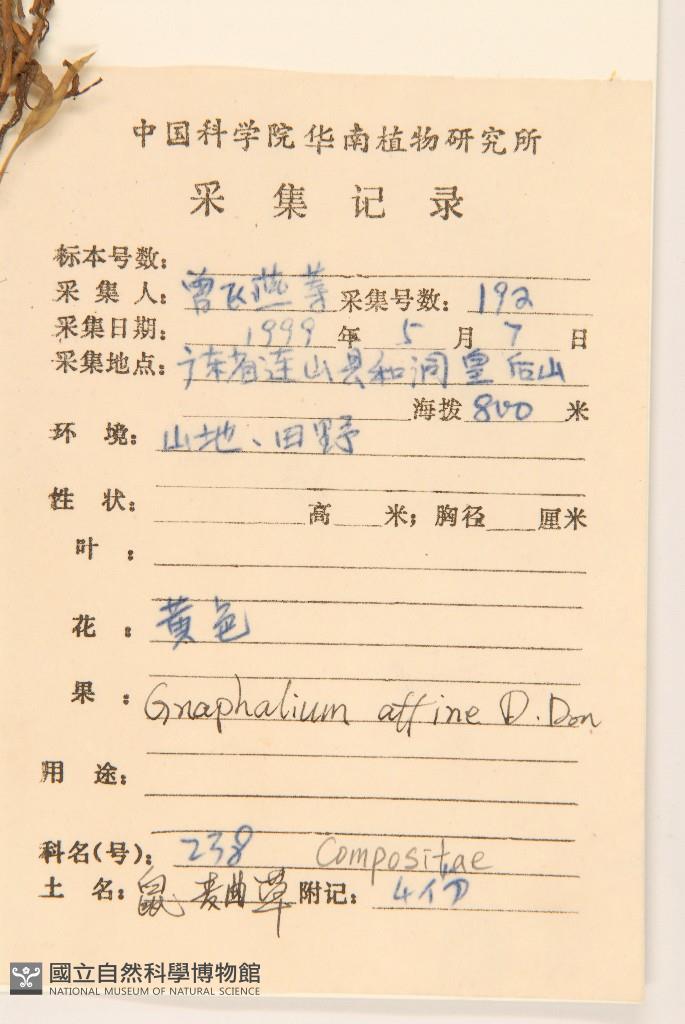 中国科学院华南植物研究所
采集记录
标本号数:
采集人: 曾飞燕等 采集号数: 192
采集日期: 1999 年 5 月 7 日
采集地点: 广东省连山县和洞皇后山
海拨 800 米
环境: 山地、田野
性状:
高 米; 胸径 厘米
叶:
花: 黄色
果: Gnaphalium affine D. Don
用途:
科名(号): 238 Compositae
土名: 鼠麦曲草 附记: 4份
國立自然科學博物館
NATIONAL MUSEUM OF NATURAL SCIENCE